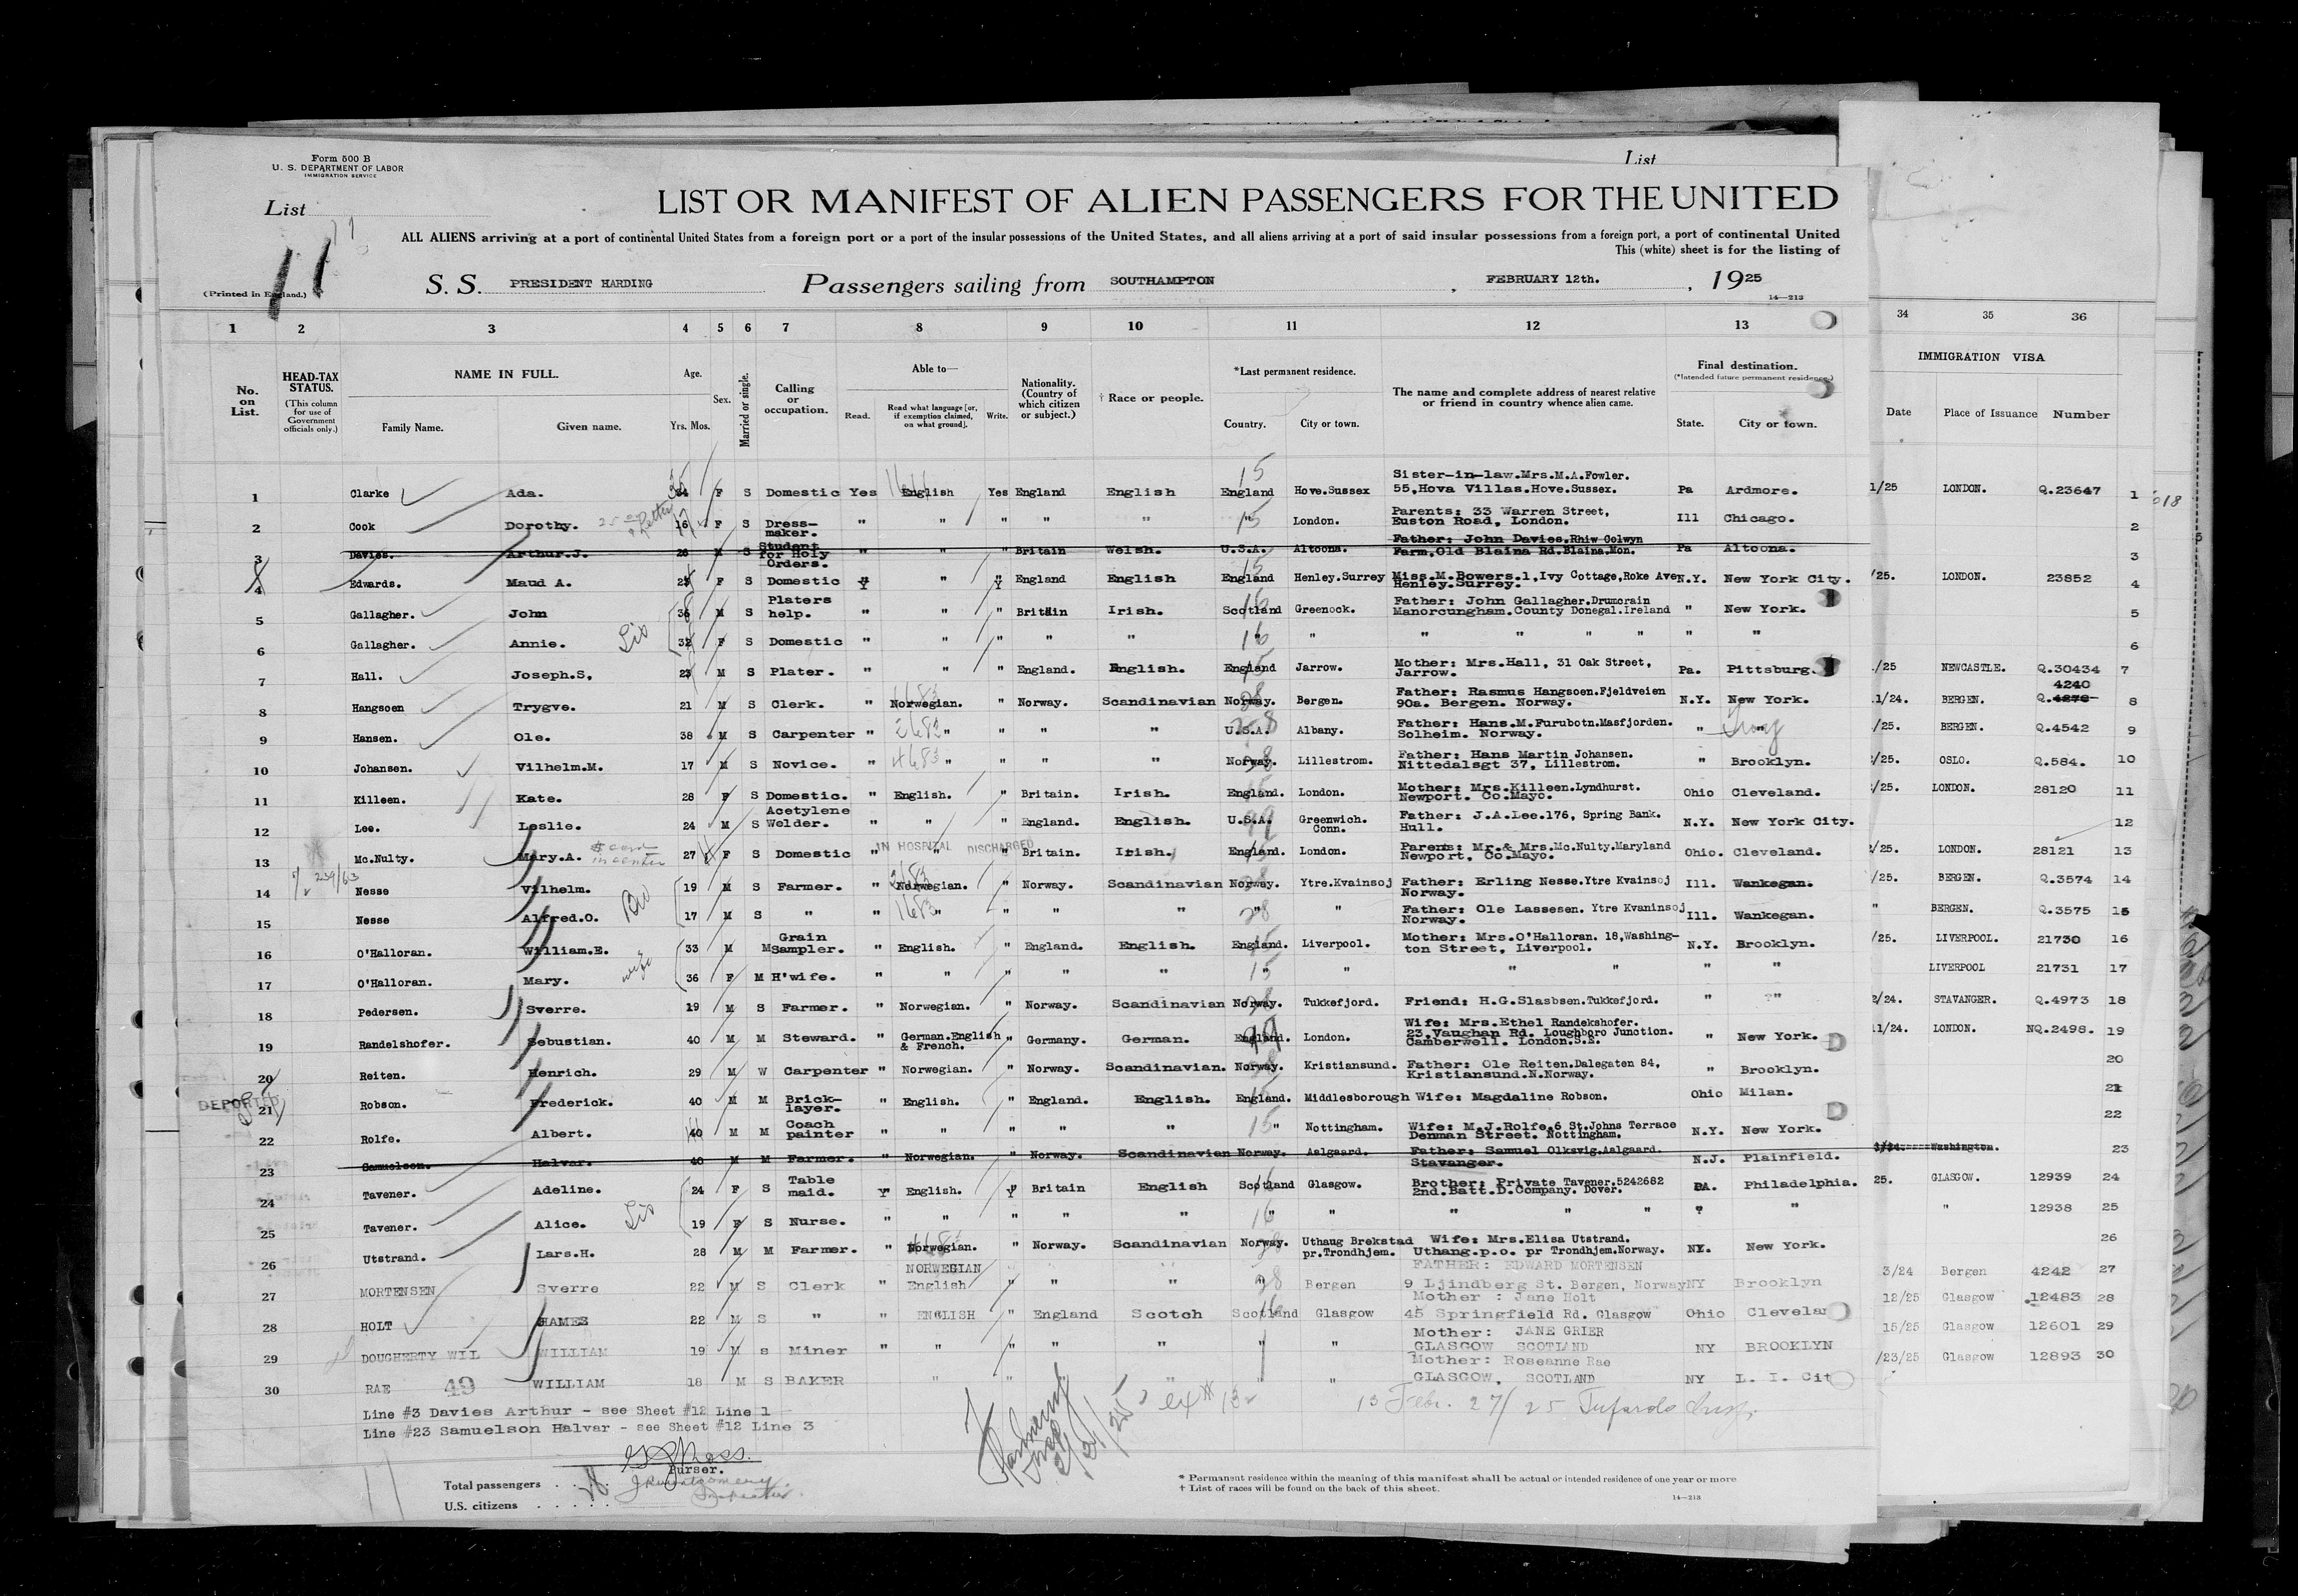 Form 500 B
U. S. DEPARTMENT OF LABOR
IMMIGRATION SERVICE
List
List
11
LIST OR MANIFEST OF ALIEN PASSENGERS FOR THE UNITED
ALL ALIENS arriving at a port of continental United States from a foreign port or a port of the insular possessions of the United States, and all aliens arriving at a port of said insular possessions from a foreign port, a port of continental United
This (white) sheet is for the listing of
(Printed in England.)
S. S. PRESIDENT HARDING Passengers sailing from SOUTHAMPTON, FEBRUARY 12th., 1925
14—213
1 2 3 4 5 6 7 8 9 10 11 12 13 34 35 36
No. on List.
HEAD-TAX STATUS. (This column for use of Government officials only.)
NAME IN FULL. Family Name. Given name.
Age. Yrs. Mos.
Sex.
Married or single.
Calling or occupation.
Able to— Read. Read what language [or, if exemption claimed, on what ground]. Write.
Nationality. (Country of which citizen or subject.)
† Race or people.
*Last permanent residence. Country. City or town.
The name and complete address of nearest relative or friend in country whence alien came.
Final destination. (*Intended future permanent residence.) State. City or town.
IMMIGRATION VISA Date Place of Issuance Number
1 Clarke Ada. 34 F S Domestic Yes English Yes England English England Hove.Sussex Sister-in-law.Mrs.M.A.Fowler. 55,Hova Villas.Hove.Sussex. Pa Ardmore. 1/25 LONDON. Q.23647 1
2 Cook Dorothy. 16 F S Dress-maker. " " " " " " London. Parents: 33 Warren Street, Euston Road, London. Ill Chicago. 2
3 Davies. Arthur.J. 26 M S Student for Holy Orders. " " " Britain Welsh. U.S.A. Altoona. Father: John Davies.Rhiw Colwyn Farm,Old Blaina Rd.Blaina.Mon. Pa Altoona. 3
4 Edwards. Maud A. F S Domestic " " " England English England Henley.Surrey Miss.M.Bowers.1,Ivy Cottage,Roke Ave Henley.Surrey. N.Y. New York City. /25. LONDON. 23852 4
5 Gallagher. John 36 M S Platers help. " " " Britain Irish. Scotland Greenock. Father: John Gallagher.Drumcrain Manorcungham.County Donegal.Ireland " New York. 5
6 Gallagher. Annie. 32 F S Domestic " " " " " " " " " " " " " 6
7 Hall. Joseph.S. M S Plater. " " " England. English. England Jarrow. Mother: Mrs.Hall, 31 Oak Street, Jarrow. Pa. Pittsburg. /25 NEWCASTLE. Q.30434 7
8 Hangsoen Trygve. 21 M S Clerk. " Norwegian. " Norway. Scandinavian Norway. Bergen. Father: Rasmus Hangsoen.Fjeldveien 90a. Bergen. Norway. N.Y. New York. 1/24. BERGEN. 4240 Q.4278 8
9 Hansen. Ole. 38 M S Carpenter " " " " " U.S.A. Albany. Father: Hans.M.Furubotn.Masfjorden. Solheim. Norway. " Troy /25. BERGEN. Q.4542 9
10 Johansen. Vilhelm.M. 17 M S Novice. " " " " " Norway. Lillestrom. Father: Hans Martin Johansen. Nittedalsgt 37, Lillestrom. " Brooklyn. /25. OSLO. Q.584. 10
11 Killeen. Kate. 28 F S Domestic. " English. " Britain. Irish. England. London. Mother: Mrs.Killeen.Lyndhurst. Newport. Co.Mayo. Ohio Cleveland. /25. LONDON. 28120 11
12 Lee. Leslie. 24 M S Acetylene Welder. " " " England. English. U.S.A. Greenwich. Conn. Father: J.A.Lee.176, Spring Bank. Hull. N.Y. New York City. 12
13 Mc.Nulty. Mary.A. 27 F S Domestic " IN HOSPITAL DISCHARGED " " Britain. Irish. England. London. Parents: Mr.& Mrs.Mc.Nulty.Maryland Newport, Co.Mayo. Ohio. Cleveland. /25. LONDON. 28121 13
14 Nesse Vilhelm. 19 M S Farmer. " Norwegian. " Norway. Scandinavian Norway. Ytre.Kvainsoj Father: Erling Nesse.Ytre Kvainsoj Norway. Ill. Wankegan. /25. BERGEN. Q.3574 14
15 Nesse Alfred.O. 17 M S " " " " " " " " Father: Ole Lassesen. Ytre Kvaninsoj Norway. Ill. Wankegan. " BERGEN. Q.3575 15
16 O'Halloran. William.E. 33 M M Grain Sampler. " English. " England. English. England. Liverpool. Mother: Mrs.O'Halloran. 18,Washing-ton Street, Liverpool. N.Y. Brooklyn. /25. LIVERPOOL. 21730 16
17 O'Halloran. Mary. 36 F M H'wife. " " " " " " " " " " " LIVERPOOL 21731 17
18 Pedersen. Sverre. 19 M S Farmer. " Norwegian. " Norway. Scandinavian Norway. Tukkefjord. Friend: H.G.Slasbsen.Tukkefjord. " " 2/24. STAVANGER. Q.4973 18
19 Randelshofer. Sebustian. 40 M M Steward. " German.English & French. " Germany. German. England. London. Wife: Mrs.Ethel Randekshofer. 23,Vaughan Rd. Loughboro Junction. Camberwell. London.S.E. " New York. 11/24. LONDON. NQ.2498. 19
20 Reiten. Henrich. 29 M W Carpenter " Norwegian. " Norway. Scandinavian. Norway. Kristiansund. Father: Ole Reiten.Dalegaten 84, Kristiansund.N.Norway. " Brooklyn. 20
DEPORTED 21 Robson. Frederick. 40 M M Brick-layer. " English. " England. English. England. Middlesborough Wife: Magdaline Robson. Ohio Milan. 21
22 Rolfe. Albert. 40 M M Coach painter " " " " " " Nottingham. Wife: M.J.Rolfe.6 St.Johns Terrace Denman Street. Nottingham. N.Y. New York. 22
23 Samuelson. Halvar. 40 M M Farmer. " Norwegian. " Norway. Scandinavian Norway. Aalgaard. Father: Samuel Olksvig.Aalgaard. Stavanger. N.J. Plainfield. Washington. 23
24 Tavener. Adeline. 24 F S Table maid. " English. " Britain English Scotland Glasgow. Brother: Private Tavener.5242682 2nd.Batt.D.Company. Dover. PA. Philadelphia. 25. GLASGOW. 12939 24
25 Tavener. Alice. 19 F S Nurse. " " " " " " " " " " " " 12938 25
26 Utstrand. Lars.H. 28 M M Farmer. " Norwegian. " Norway. Scandinavian Norway. Uthaug Brekstad pr.Trondhjem. Wife: Mrs.Elisa Utstrand. Uthang.p.o. pr Trondhjem.Norway. NY. New York. 26
27 MORTENSEN Sverre 22 M S Clerk " NORWEGIAN English " " " " Bergen FATHER: EDWARD MORTENSEN 9 Ljindberg St. Bergen, Norway NY Brooklyn 3/24 Bergen 4242 27
28 HOLT JAMES 22 M S " " ENGLISH " England Scotch Scotland Glasgow Mother : Jane Holt 45 Springfield Rd. Glasgow Ohio Clevelan 12/25 Glasgow 12483 28
29 DOUGHERTY WIL WILLIAM 19 M S Miner " " " " " " " Mother: JANE GRIER GLASGOW SCOTLAND NY BROOKLYN 15/25 Glasgow 12601 29
30 RAE 49 WILLIAM 18 M S BAKER " " " " Mother: Roseanne Rae GLASGOW, SCOTLAND NY L. I. Cit /23/25 Glasgow 12893 30
Line #3 Davies Arthur - see Sheet #12 Line 1
Line #23 Samuelson Halvar - see Sheet #12 Line 3
Purser.
Total passengers
U.S. citizens
* Permanent residence within the meaning of this manifest shall be actual or intended residence of one year or more
† List of races will be found on the back of this sheet.
14—213